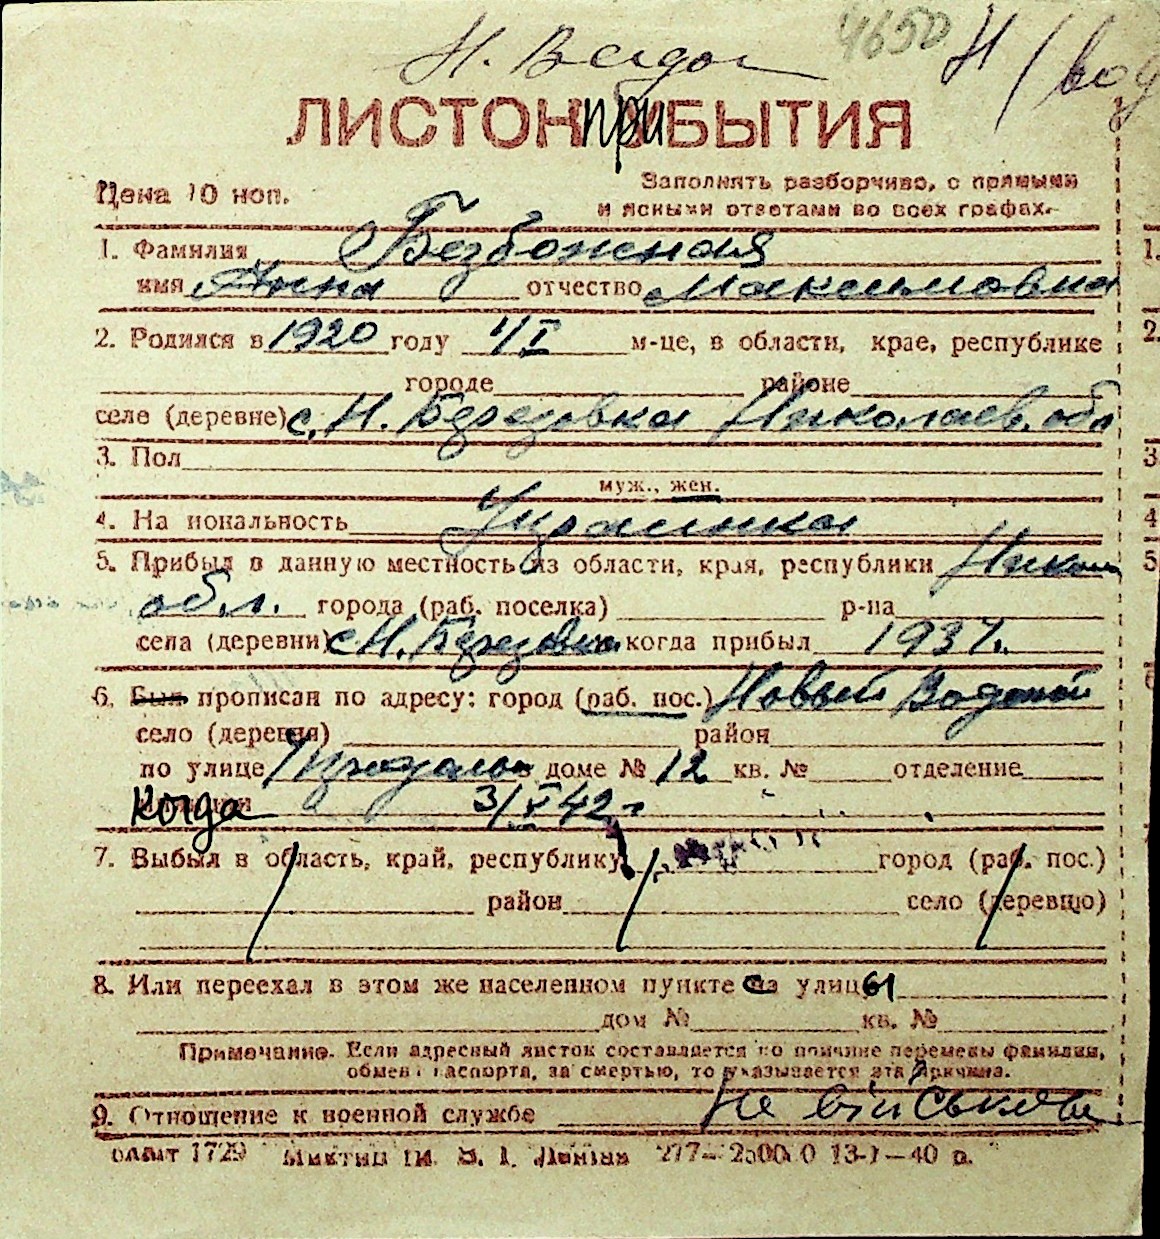 4650
Н / вод
ЛИСТОК прИБЫТИЯ
Цена 10 коп.
Заполнять разборчиво, с прямыми
и ясными ответами во всех графах.
1. Фамилия Безбожная
имя Анна отчество Максимовна
2. Родился в 1920 году 4/I м-це, в области, крае, республике
городе районе
селе (деревне) с. Н. Березовка Николаев. обл
3. Пол
муж., жен.
4. Национальность Украинка
5. Прибыл в данную местность из области, края, республики Никол
обл. города (раб. поселка) р-на
села (деревни) с Н. Березовка когда прибыл 1937.
6. Был прописан по адресу: город (раб. пос.) Новый Водопой
село (деревня) район
по улице Продольн доме № 12 кв. № отделение
Когда 3/V 42 г
7. Выбыл в область, край, республику город (раб. пос.)
район село (деревню)
8. Или переехал в этом же населенном пункте с улицы
дом № кв. №
Примечание. Если адресный листок составляется по причине перемены фамилии,
обмена паспорта, за смертью, то указывается эта причина.
9. Отношение к военной службе Не військова
1729 2500 0 13-I—40 р.
1.
2.
3
4
5